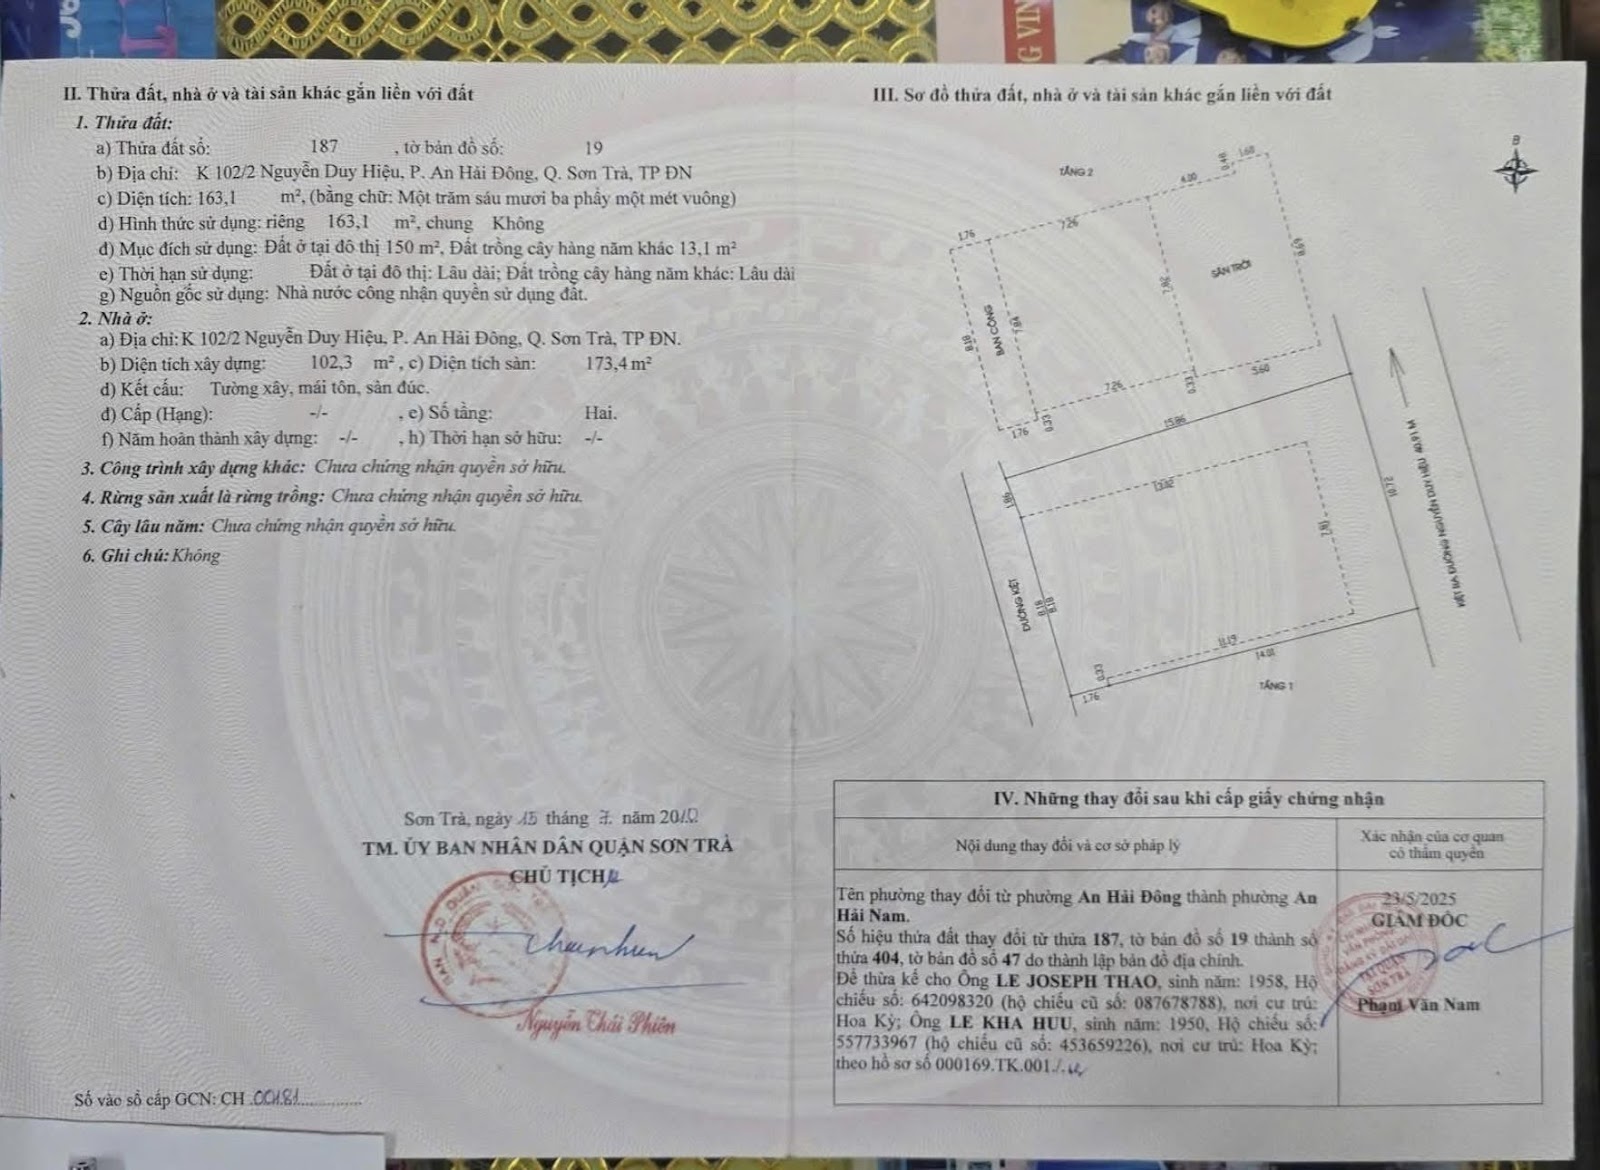 II. Thửa đất, nhà ở và tài sản khác gắn liền với đất
1. Thửa đất:
a) Thửa đất số: 187 , tờ bản đồ số: 19
b) Địa chỉ: K 102/2 Nguyễn Duy Hiệu, P. An Hải Đông, Q. Sơn Trà, TP ĐN
c) Diện tích: 163,1 m², (bằng chữ: Một trăm sáu mươi ba phẩy một mét vuông)
d) Hình thức sử dụng: riêng 163,1 m², chung Không
đ) Mục đích sử dụng: Đất ở tại đô thị 150 m², Đất trồng cây hàng năm khác 13,1 m²
e) Thời hạn sử dụng: Đất ở tại đô thị: Lâu dài; Đất trồng cây hàng năm khác: Lâu dài
g) Nguồn gốc sử dụng: Nhà nước công nhận quyền sử dụng đất.
2. Nhà ở:
a) Địa chỉ: K 102/2 Nguyễn Duy Hiệu, P. An Hải Đông, Q. Sơn Trà, TP ĐN.
b) Diện tích xây dựng: 102,3 m² , c) Diện tích sàn: 173,4 m²
d) Kết cấu: Tường xây, mái tôn, sàn đúc.
đ) Cấp (Hạng): -/- , e) Số tầng: Hai.
f) Năm hoàn thành xây dựng: -/- , h) Thời hạn sở hữu: -/-
3. Công trình xây dựng khác: Chưa chứng nhận quyền sở hữu.
4. Rừng sản xuất là rừng trồng: Chưa chứng nhận quyền sở hữu.
5. Cây lâu năm: Chưa chứng nhận quyền sở hữu.
6. Ghi chú: Không
Sơn Trà, ngày 15 tháng 7. năm 2010
TM. ỦY BAN NHÂN DÂN QUẬN SƠN TRÀ
CHỦ TỊCH
Nguyễn Thái Phiên
Số vào sổ cấp GCN: CH 00181
III. Sơ đồ thửa đất, nhà ở và tài sản khác gắn liền với đất
B
TẦNG 2
1.76
7.26
4.00
0.48
1.60
8.18
BAN CÔNG
7.84
7.86
SÂN TRỜI
8.69
1.76
0.33
7.26
0.33
5.60
15.86
1.86
10.72
7.83
KIỆT RA ĐƯỜNG NGUYỄN DUY HIỆU 40.91 M
ĐƯỜNG KIỆT
8.18
8.18
0.33
1.76
11.19
14.01
TẦNG 1
IV. Những thay đổi sau khi cấp giấy chứng nhận
Nội dung thay đổi và cơ sở pháp lý
Xác nhận của cơ quan
có thẩm quyền
Tên phường thay đổi từ phường An Hải Đông thành phường An
Hải Nam.
Số hiệu thửa đất thay đổi từ thửa 187, tờ bản đồ số 19 thành số
thửa 404, tờ bản đồ số 47 do thành lập bản đồ địa chính.
Để thừa kế cho Ông LE JOSEPH THAO, sinh năm: 1958, Hộ
chiếu số: 642098320 (hộ chiếu cũ số: 087678788), nơi cư trú:
Hoa Kỳ; Ông LE KHA HUU, sinh năm: 1950, Hộ chiếu số:
557733967 (hộ chiếu cũ số: 453659226), nơi cư trú: Hoa Kỳ;
theo hồ sơ số 000169.TK.001./.
23/5/2025
GIÁM ĐỐC
TẠI QUẬN
SƠN TRÀ
Phạm Văn Nam